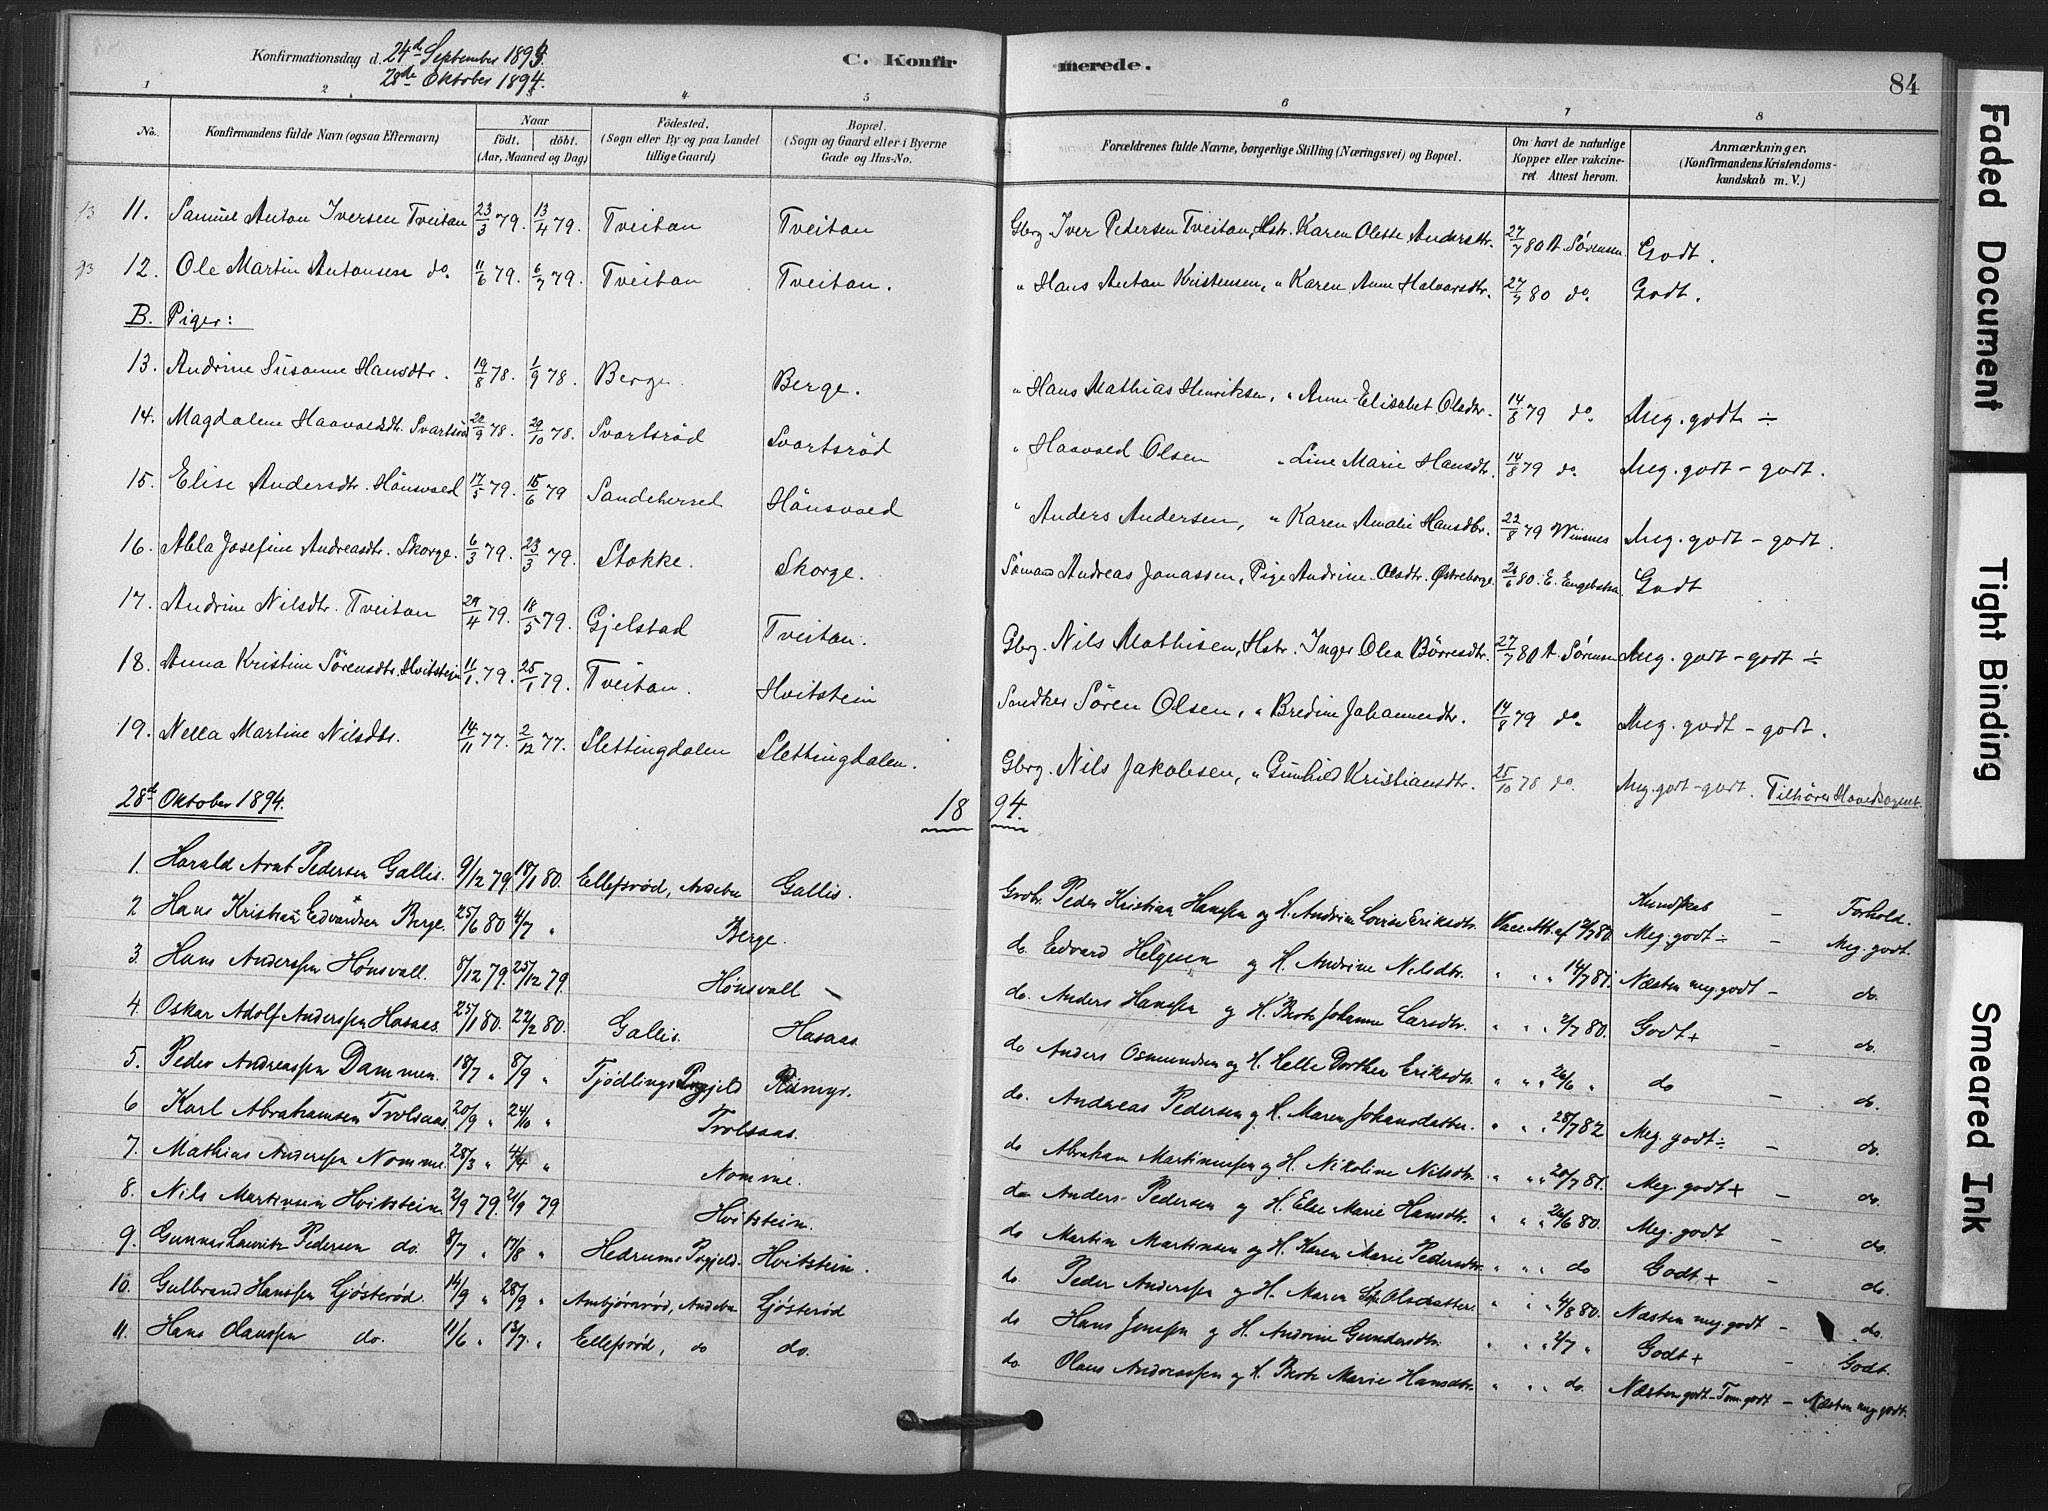 Konfirmationsdag d. 24de September 1893. C. Konfirmerede. 84
28de Oktober 1894.
1 2 3 4 5 6 7 8
No. Konfirmandens fulde Navn (ogsaa Efternavn) Naar født. døbt. (Aar, Maaned og Dag) Fødested. (Sogn eller By og paa Landet tillige Gaard) Bopæl. (Sogn og Gaard eller i Byerne Gade og Hus-No. Forældrenes fulde Navne, borgerlige Stilling (Næringsvei) og Bopæl. Om havt de naturlige Kopper eller vakcineret Attest herom. Anmærkninger. (Konfirmandens Kristendomskundskab m. V.)
11. Samuel Anton Iversen Tveitan 23/3 79. 13/4 79. Tveitan Tveitan Gbrg. Iver Pedersen Tveitan, Hstr. Karen Olette Andersdtr. 27/7 80 A. Sørensen Godt.
12. Ole Martin Antonsen do. 11/6 79. 6/7 79. Tveitan Tveitan. " Hans Anton Kristensen, " Karen Anne Halvorsdtr. 27/7 80 do. Godt.
B. Piger:
13. Andrine Susanne Hansdtr. 19/8 78. 1/9 78. Berge. Berge. " Hans Mathias Henriksen, " Anne Elisabet Olsdtr. 14/8 79 do. Meg. godt ÷
14. Magdalene Haavoldsdtr. Svartsrød 22/9 78. 20/10 78. Svartsrød Svartsrød " Haavold Olsen " Line Marie Hansdtr. 14/8 79 do. Meg. godt - godt.
15. Elise Andersdtr. Hönsvold 17/5 79. 15/6 79 Sandeherred Hönsvold " Anders Andersen, " Karen Amalie Hansdtr. 22/8 79 Winsnes Meg. godt - godt.
16. Abla Josefine Andreasdtr. Skorge. 6/3 79. 23/3 79. Stokke. Skorge. Sømand Andreas Jonassen, Pige Andrine Olsdtr. Østreborge 26/6 80. E. Engebretsen. Godt
17. Andrine Nilsdtr. Tveitan 29/4 79. 18/5 79. Gjelstad Tveitan. Gbrg. Nils Mathisen, Hstr. Inger Olea Börresdtr. 27/7 80 A. Sørensen Meg. godt - godt ÷
18. Anna Kristine Sörensdtr. Hvitstein 11/1 79. 25/1 79. Tveitan. Hvitstein Sören Olsen, " Bredine Johannesdtr. 14/8 79 do. Meg. godt - godt.
19. Nella Martine Nilsdtr. 14/11 77. 2/12 77. Slettingdalen Slettingdalen. Gbrg. Nils Jakobsen, " Gunhild Kristiansdtr. 25/10 78 do. Meg. godt - godt. Tilhører Hovedsognet.
28de Oktober 1894. 18 94.
Kundskab - Forhold.
1. Harald Arnt Pedersen Gallis. 9/12 79. 18/1 80. Ellefsrød, Andebu Gallis. Grdbr. Peder Kristian Hanssen og H. Andrine Lovise Eriksdtr. Vacc. Att. af 12/7 80. Meg. godt ÷ - Meg. godt.
2 Hans Kristian Edvardsen Berge. 25/6 80 4/7 " Berge. do. Edvard Helgesen og H. Andrine Nilsdtr. " " " 14/7 81. Næsten meg. godt - do.
3. Hans Anderssen Hønsvall. 8/12 79. 25/12 79. Hønsvall do. Anders Hanssen og H. Berte Johanne Larsdtr. " " " 2/7 80. Godt + - do.
4. Oskar Adolf Anderssen Hasaas. 25/1 80. 22/2 80. Gallis. Hasaas. do Anders Osmundsen og H. Helle Dorthea Eriksdtr. " " " 26/6 " do - do.
5. Peder Andreassen Dammen. 18/7 " 8/9 " Tjødlings Prgjeld Rismyr. do. Andreas Pedersen og H. Maren Johansdatter. " " " 28/7 82 Meg. godt ÷ - do.
6 Karl Abrahamsen Trolsaas. 20/9 " 24/10 " Trolsaas. do Abraham Martinussen og H. Nikoline Nilsdtr. " " " 20/7 81. Meg. godt + - do.
7. Mathias Anderssen Nomme. 28/3 " 4/4 " Nomme. do Anders Pedersen og H. Else Marie Hansdtr. " " " 26/6 80. Meg. godt - do.
8. Nils Martinsen Hvitstein. 2/9 79. 21/9 79 Hvitstein. do Martin Martinsen og H. Karen Marie Pedersdtr. " " " do Godt + - do.
9. Gunnar Lauritz Pedersen do. 8/7 " 17/8 " Hedrums Prgjeld. Hvitstein. do. Peder Anderssen og H. Maren Olsdatter. " " " 4/8 80. Næsten meg. godt - do.
10. Gulbrand Hanssen Ljøsterød. 14/9 " 28/9 " Ambjørnsrød, Andebu Ljøsterød do Hans Jenssen og H. Andrine Gundersdtr. " " " 2/7 " Godt + - Godt.
11. Hans Olaussen do. 11/6 " 13/7 " Ellefsrød, do do. do. Olaus Anderssen og H. Berte Marie Hansdtr. " " " do. Næsten godt - Tem. godt - Næsten meg. godt.
Faded Document
Tight Binding
Smeared Ink